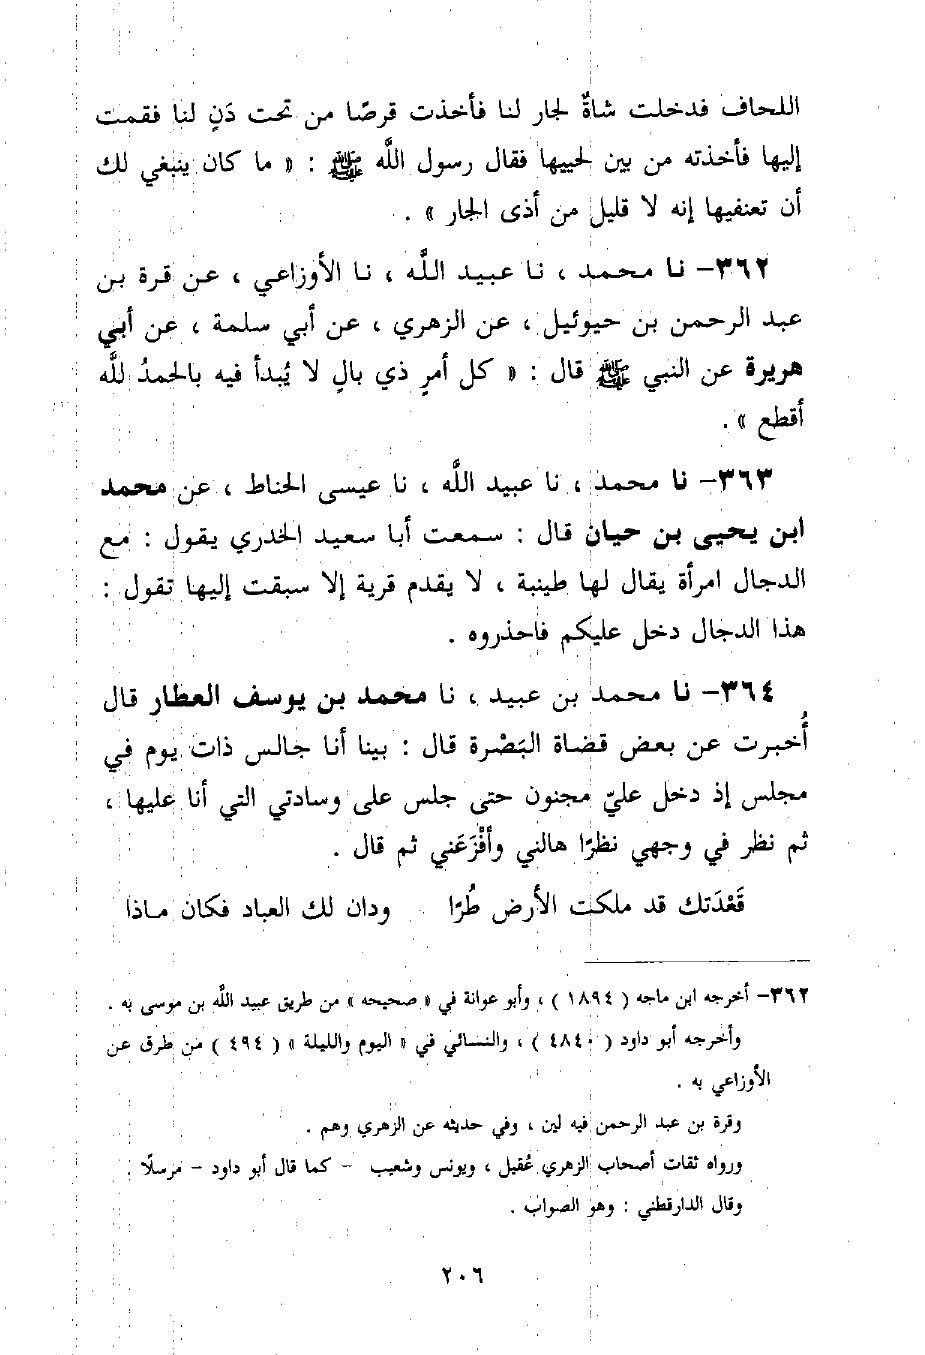 اللحاف فدخلت شاةٌ لجار لنا فأخذت قرصًا من تحت دَنٍ لنا فقمت
إليها فأخذته من بين لحييها فقال رسول اللَّه ﷺ : « ما كان ينبغي لك
أن تعنفيها إنه لا قليل من أذى الجار » .
٣٦٢- نا محمد ، نا عبيد اللَّه ، نا الأوزاعي ، عن قرة بن
عبد الرحمن بن حيوئيل ، عن الزهري ، عن أبي سلمة ، عن أبي
هريرة عن النبي ﷺ قال : « كل أمرٍ ذي بالٍ لا يُبدأ فيه بالحمدُ للَّه
أقطع » .
٣٦٣- نا محمد ، نا عبيد اللَّه ، نا عيسى الحناط ، عن محمد
ابن يحيى بن حيان قال : سمعت أبا سعيد الخدري يقول : مع
الدجال امرأة يقال لها طيبة ، لا يقدم قرية إلا سبقت إليها تقول :
هذا الدجال دخل عليكم فاحذروه .
٣٦٤- نا محمد بن عبيد ، نا محمد بن يوسف العطار قال
أُخبرت عن بعض قضاة البَصْرة قال : بينا أنا جالس ذات يوم في
مجلس إذ دخل عليّ مجنون حتى جلس على وسادتي التي أنا عليها ،
ثم نظر في وجهي نظرًا هالني وأفْزَعَني ثم قال .
قَعْدَتك قد ملكت الأرض طُرًا ودان لك العباد فكان ماذا
٣٦٢- أخرجه ابن ماجه ( ١٨٩٤ ) ، وأبو عوانة في « صحيحه » من طريق عبيد اللَّه بن موسى به .
وأخرجه أبو داود ( ٤٨٤٠ ) ، والنسائي في « اليوم والليلة » ( ٤٩٤ ) من طرق عن
الأوزاعي به .
وقرة بن عبد الرحمن فيه لين ، وفي حديثه عن الزهري وهم .
ورواه ثقات أصحاب الزهري عُقيل ، ويونس وشعيب - كما قال أبو داود - مرسلًا .
وقال الدارقطني : وهو الصواب .
٢٠٦